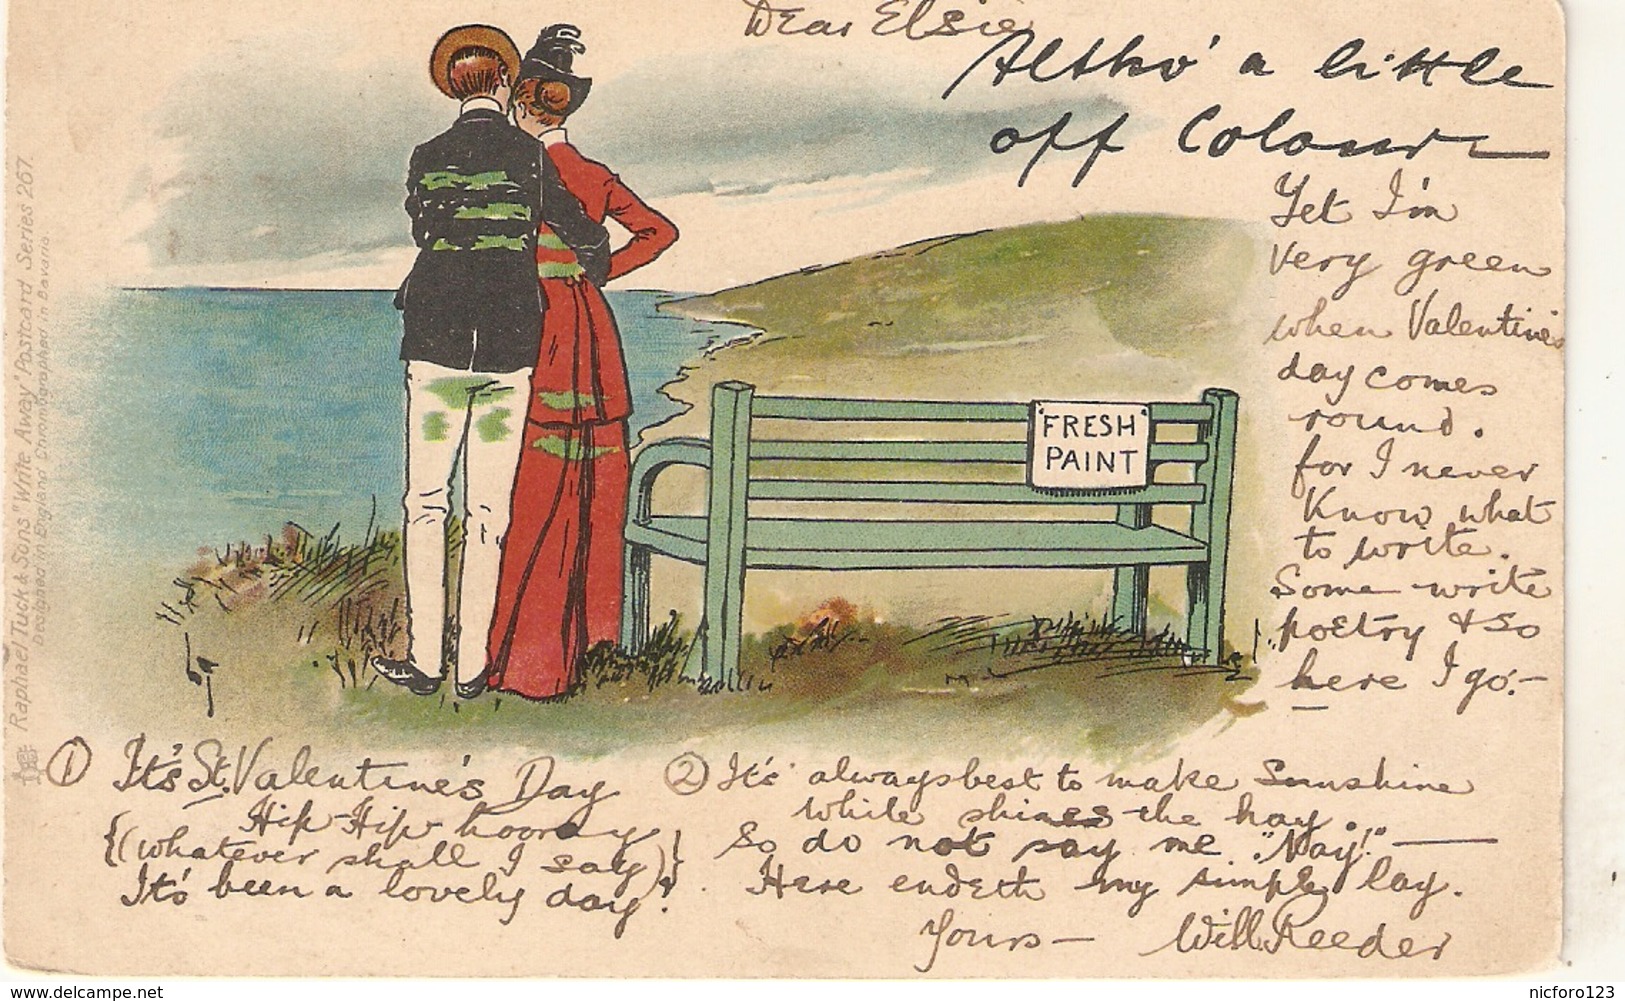 Dear Elsie
Altho' a little
off Colour
Yet I'm
very green
when Valentine's
day comes
round.
for I never
know what
to write.
Some write
poetry & so
here I go:-
'FRESH'
PAINT
Raphael Tuck & Sons "Write Away" Postcard Series 267.
Designed in England Chromographed in Bavaria
① It's St. Valentine's Day
Hip-Hip-hooray
{(whatever shall I say)}
It's been a lovely day!
② It's always best to make Sunshine
while shines the hay.
So do not say me "Nay!"
Here endeth my simple lay.
Yours— Will Reeder
www.delcampe.net
nicforo123